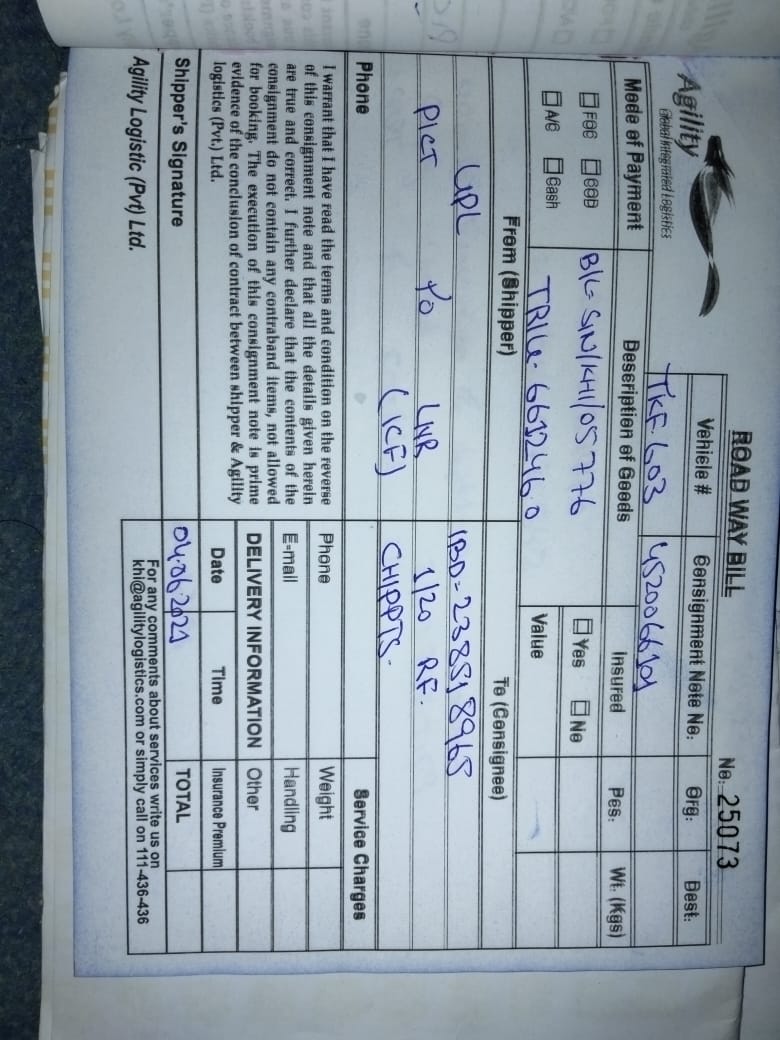 ROAD WAY BILL
No. 25073
Agility
Global Integrated Logistics
Vehicle #
Consignment Note No.
Org:
Dest:
TKF-603
4520066101
Mode of Payment
Description of Goods
Insured
Pcs.
Wt. (Kgs)
FOC
COD
B/L- SIN/KHI/05776
Yes
No
A/C
Cash
6612460
Value
From (Shipper)
To (Consignee)
UPL
IBD-238518965
PICT To LHR
1/20 RF.
(ICF)
CHIPPTS-
Phone
Service Charges
I warrant that I have read the terms and condition on the reverse
of this consignment note and that all the details given herein
are true and correct. I further declare that the contents of the
consignment do not contain any contraband items, not allowed
for booking. The execution of this consignment note is prime
evidence of the conclusion of contract between shipper & Agility
logistics (Pvt.) Ltd.
Phone
Weight
E-mail
Handling
DELIVERY INFORMATION
Other
Date
Time
Insurance Premium
Shipper's Signature
04-06-2021
TOTAL
Agility Logistic (Pvt) Ltd.
For any comments about services write us on
khi@agilitylogistics.com or simply call on 111-436-436